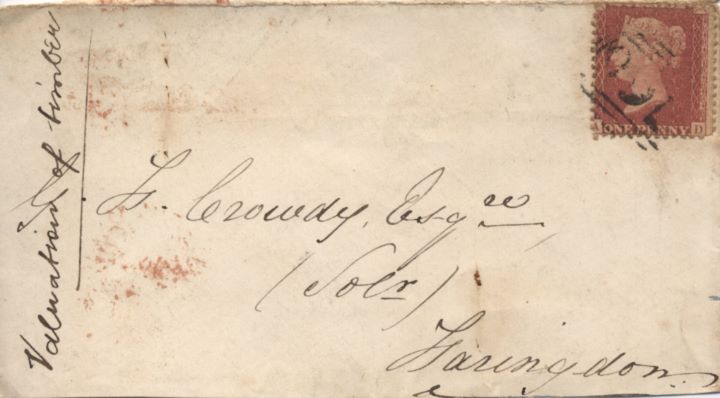 Valuation of timber
F. Crowdy, Esqre
(Solr)
Faringdon
ONE PENNY
D